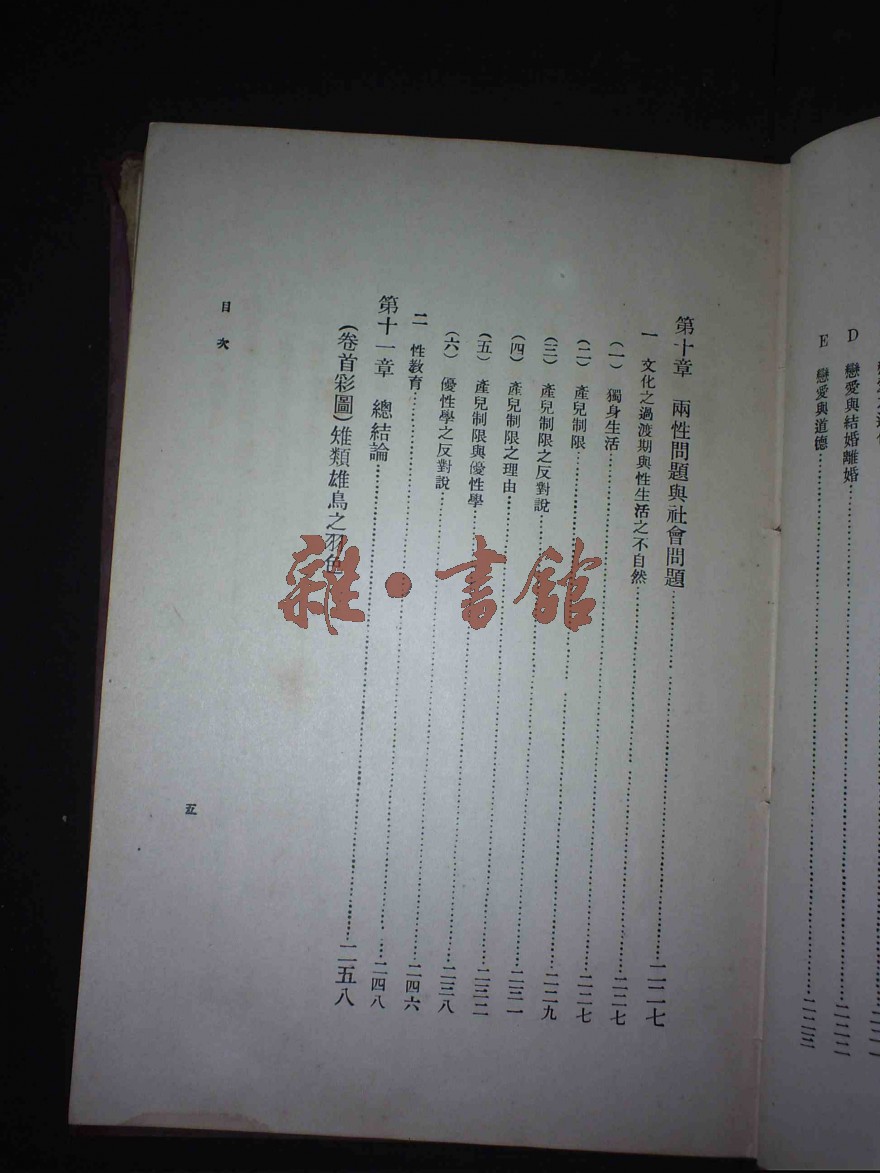 D 戀愛與結婚離婚……二二二
E 戀愛與道德……二二三
第十章 兩性問題與社會問題……二二七
一 文化之過渡期與性生活之不自然……二二七
（一） 獨身生活……二二七
（二） 產兒制限……二二九
（三） 產兒制限之反對說……二三一
（四） 產兒制限之理由……二三二
（五） 產兒制限與優性學……二三八
（六） 優性學之反對說……二四六
二 性教育……二四八
第十一章 總結論……二五八
（卷首彩圖）雉類雄鳥之羽色
目次
五
雜·書館